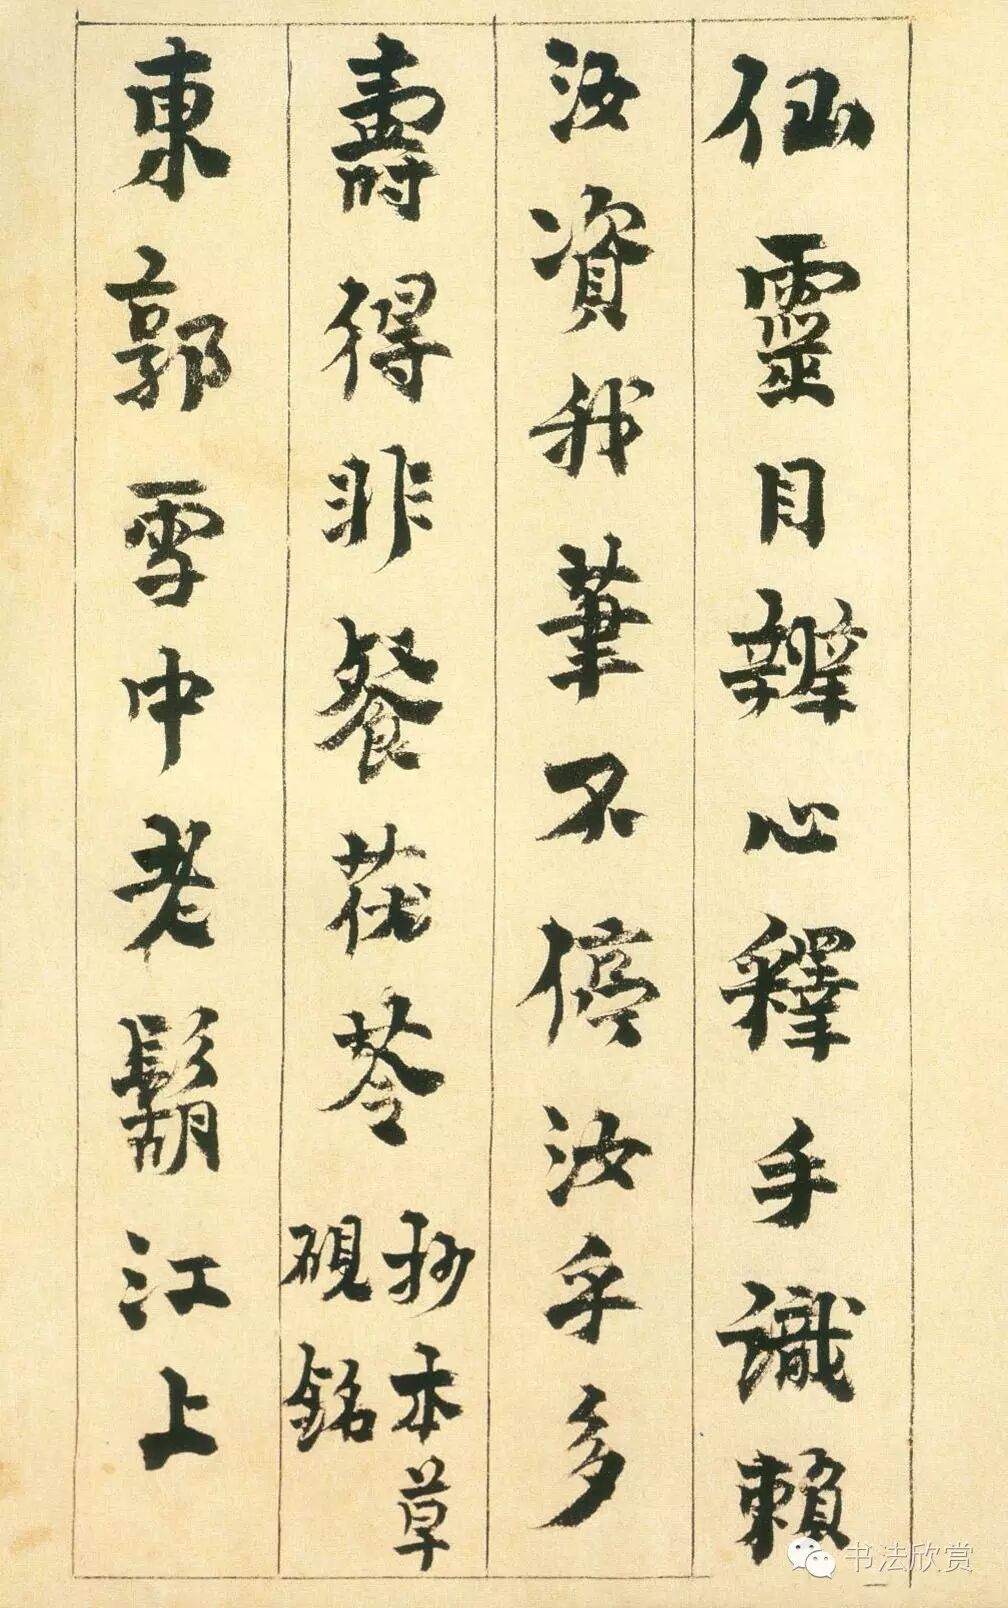 仙靈目辨心釋手識賴
汝資我筆不停汝乎多
壽得非餐茯苓
抄本草
硯銘
東郭雪中老鬍江上
书法欣赏